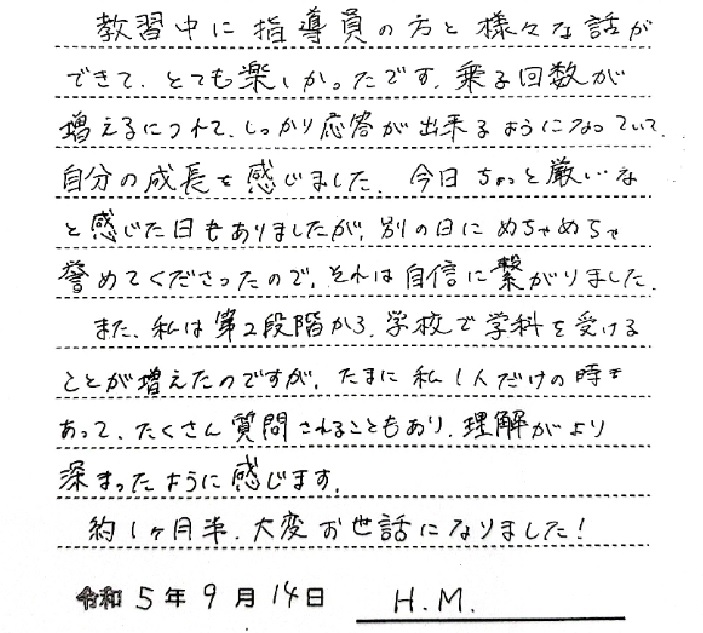 教習中に指導員の方と様々な話が
できて、とても楽しかったです。乗る回数が
増えるにつれて、しっかり応答が出来るようになっていて、
自分の成長を感じました。今日ちょっと厳しいな
と感じた日もありましたが、別の日にめちゃめちゃ
誉めてくださったので、それは自信に繋がりました。
また、私は第2段階から、学校で学科を受ける
ことが増えたのですが、たまに私1人だけの時も
あって、たくさん質問されることもあり、理解がより
深まったように感じます。
約1ヶ月半、大変お世話になりました!
令和5年9月14日 H.M.